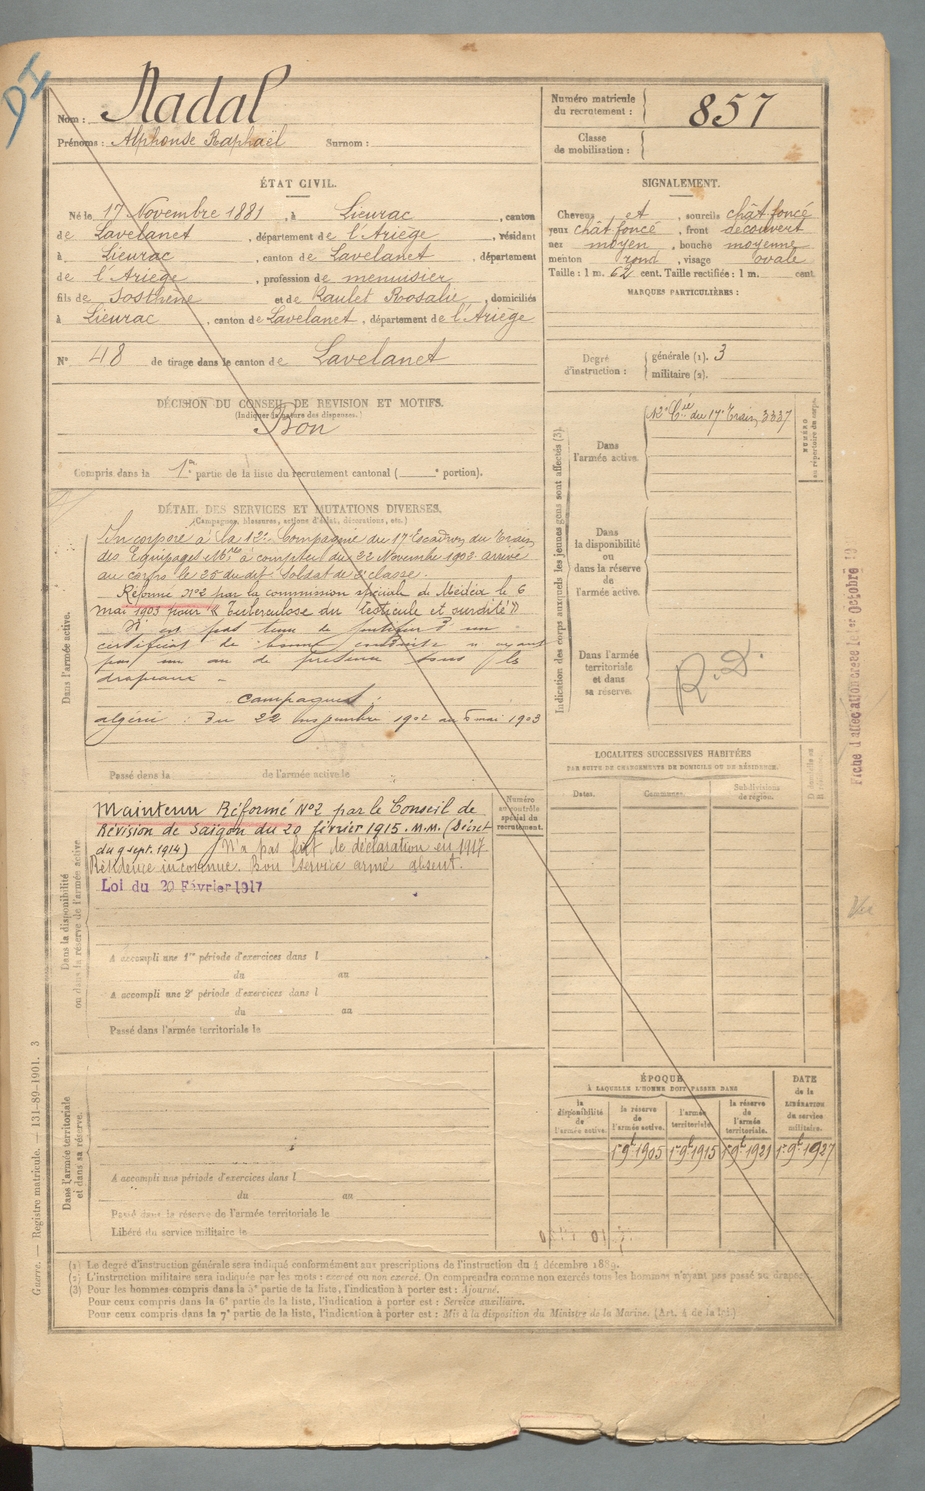 DI
Nom : Nadal
Prénoms : Alphonse Raphaël Surnom :
Numéro matricule du recrutement : 857
Classe de mobilisation :
ÉTAT CIVIL.
Né le 17 Novembre 1881, à Lieurac, canton
de Lavelanet, département de l'Ariège, résidant
à Lieurac, canton de Lavelanet, département
de l'Ariège, profession de menuisier
fils de Sosthène et de Raulet Roosalie, domiciliés
à Lieurac, canton de Lavelanet, département de l'Ariège
N° 48 de tirage dans le canton de Lavelanet
SIGNALEMENT.
Cheveux et, sourcils chât foncé
yeux chât foncé, front découvert
nez moyen, bouche moyenne
menton rond, visage ovale
Taille : 1 m. 62 cent. Taille rectifiée : 1 m. cent.
MARQUES PARTICULIÈRES :
Degré d'instruction : générale (1). 3
militaire (2).
DÉCISION DU CONSEIL DE REVISION ET MOTIFS.
(Indiquer la nature des dispenses.)
Bon
Compris dans la 1re partie de la liste du recrutement cantonal ( e portion).
DÉTAIL DES SERVICES ET MUTATIONS DIVERSES.
(Campagnes, blessures, actions d'éclat, décorations, etc.)
Dans l'armée active.
Incorporé à la 12e Compagnie du 17e Escadron du Train
des Equipages Mres à compter du 22 Novembre 1902 arrivé
au corps le 25 dudit. Soldat de 2e classe.
Réformé N°2 par la commission spéciale de Médéa le 6
mai 1903 pour "Tuberculose du testicule et surdité"
N'est pas tenu de justifier d'un
certificat de bonne conduite n'ayant
pas un an de présence sous les
drapeaux -
Campagnes :
Algérie : Du 22 novembre 1902 au 6 mai 1903
Passé dans la de l'armée active le
Indication des corps auxquels les jeunes gens sont affectés (3).
Dans l'armée active.
12e Cie du 17e Train 3337
NUMÉRO au répertoire du corps.
Dans la disponibilité ou dans la réserve de l'armée active.
Dans l'armée territoriale et dans sa réserve.
R.D.
Dans la disponibilité ou dans la réserve de l'armée active
Maintenu Réformé N°2 par le Conseil de
Révision de Saïgon du 20 février 1915. M.M. (Décret
du 9 sept. 1914) N'a pas fait de déclaration en 1917.
Résidence inconnue. Bon service armé absent.
Loi du 20 Février 1917
Numéro au contrôle spécial du recrutement.
A accompli une 1re période d'exercices dans l
du au
A accompli une 2e période d'exercices dans l
du au
Passé dans l'armée territoriale le
LOCALITÉS SUCCESSIVES HABITÉES
PAR SUITE DE CHANGEMENTS DE DOMICILE OU DE RÉSIDENCE.
Dates. Communes. Subdivisions de région.
Dans l'armée territoriale et dans sa réserve.
A accompli une période d'exercices dans l
du au
Passé dans la réserve de l'armée territoriale le
Libéré du service militaire le
ÉPOQUE
À LAQUELLE L'HOMME DOIT PASSER DANS
la disponibilité de l'armée active.
la réserve de l'armée active.
l'armée territoriale.
la réserve de l'armée territoriale.
DATE de la LIBÉRATION du service militaire.
1er 9bre 1905 1er 9bre 1915 1er 9bre 1921 1er 9bre 1927
Fiche d'affectation créée le 1er Octobre 19
Vu
(1) Le degré d'instruction générale sera indiqué conformément aux prescriptions de l'instruction du 4 décembre 1889.
(2) L'instruction militaire sera indiquée par les mots : exercé ou non exercé. On comprendra comme non exercés tous les hommes n'ayant pas passé au drapeau.
(3) Pour les hommes compris dans la 5e partie de la liste, l'indication à porter est : Ajourné.
Pour ceux compris dans la 6e partie de la liste, l'indication à porter est : Service auxiliaire.
Pour ceux compris dans la 7e partie de la liste, l'indication à porter est : Mis à la disposition du Ministre de la Marine. (Art. 4 de la loi)
Guerre. — Registre matricule. — 131-89-1901. 3